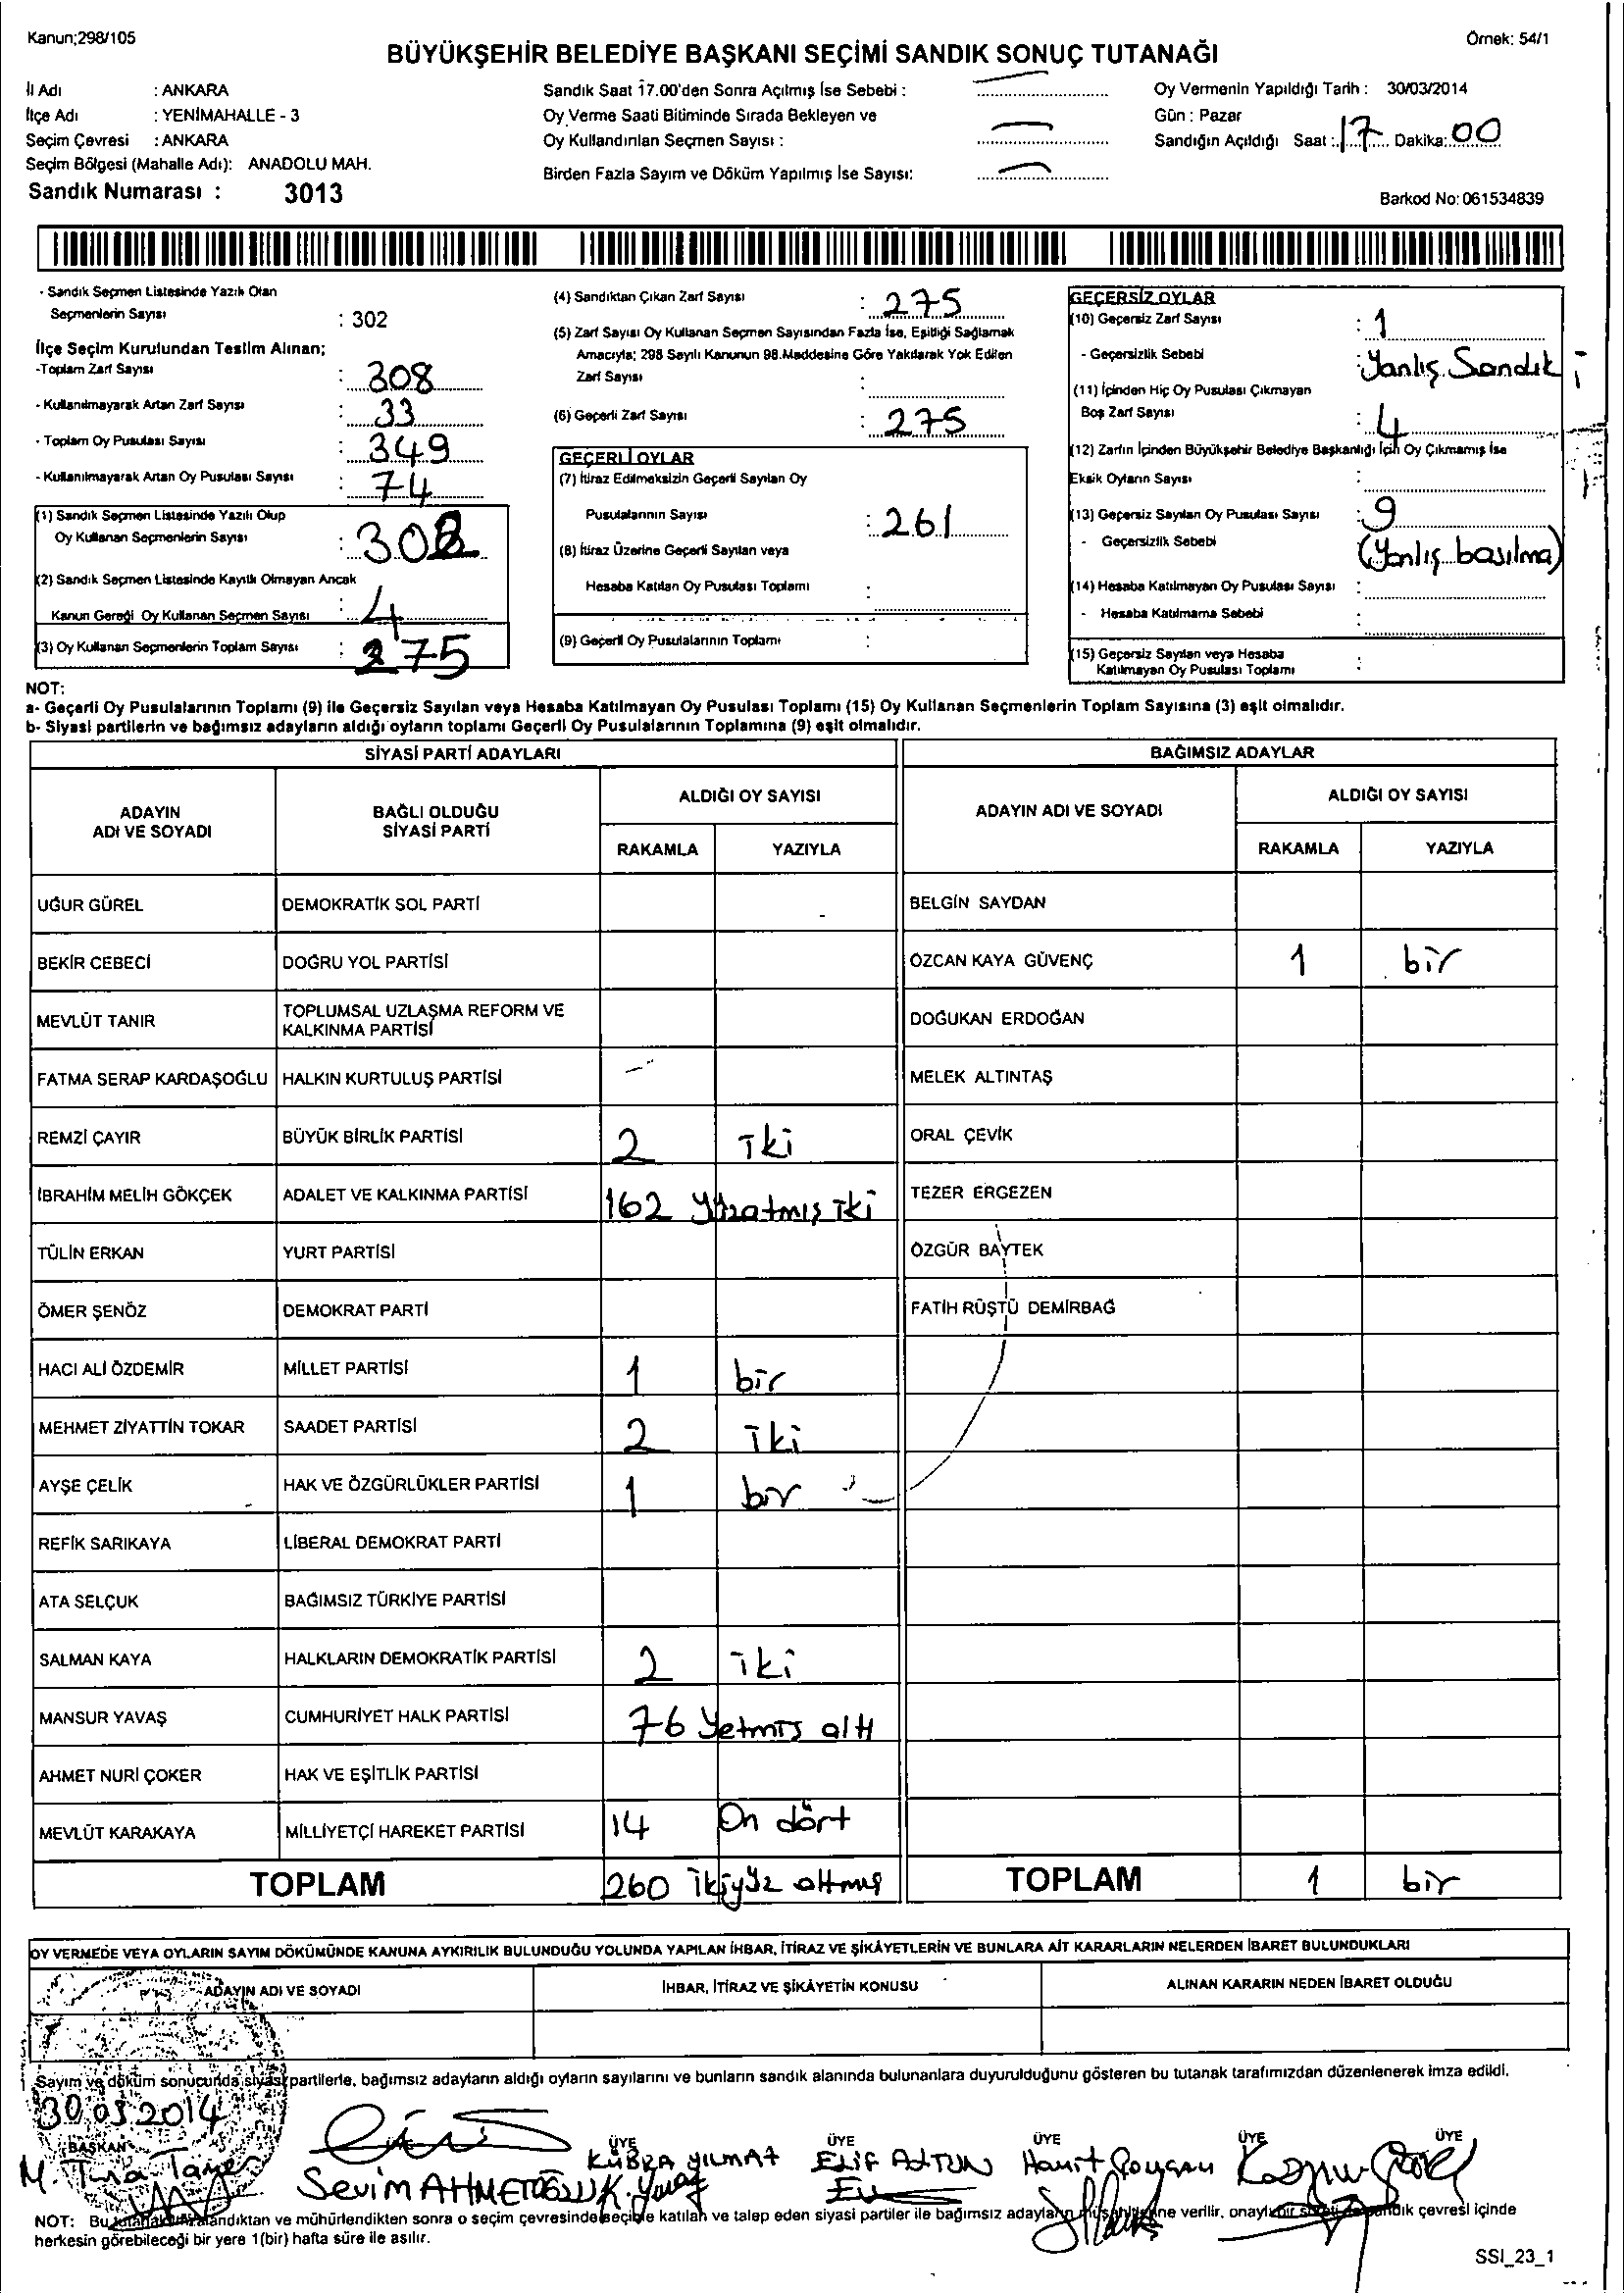 Kanun;298/105
Örnek: 54/1
BÜYÜKŞEHİR BELEDİYE BAŞKANI SEÇİMİ SANDIK SONUÇ TUTANAĞI
İl Adı : ANKARA
İlçe Adı : YENİMAHALLE - 3
Seçim Çevresi : ANKARA
Seçim Bölgesi (Mahalle Adı): ANADOLU MAH.
Sandık Numarası : 3013
Sandık Saat 17.00'den Sonra Açılmış İse Sebebi :
Oy Verme Saati Bitiminde Sırada Bekleyen ve
Oy Kullandırılan Seçmen Sayısı :
Birden Fazla Sayım ve Döküm Yapılmış İse Sayısı:
Oy Vermenin Yapıldığı Tarih : 30/03/2014
Gün : Pazar
Sandığın Açıldığı Saat : 17 Dakika: 00
Barkod No: 061534839
- Sandık Seçmen Listesinde Yazılı Olan
Seçmenlerin Sayısı : 302
İlçe Seçim Kurulundan Teslim Alınan;
-Toplam Zarf Sayısı : 308
- Kullanılmayarak Artan Zarf Sayısı : 33
- Toplam Oy Pusulası Sayısı : 349
- Kullanılmayarak Artan Oy Pusulası Sayısı : 74
(1) Sandık Seçmen Listesinde Yazılı Olup
Oy Kullanan Seçmenlerin Sayısı : 308
(2) Sandık Seçmen Listesinde Kayıtlı Olmayan Ancak
Kanun Gereği Oy Kullanan Seçmen Sayısı : 4
(3) Oy Kullanan Seçmenlerin Toplam Sayısı : 275
(4) Sandıktan Çıkan Zarf Sayısı : 275
(5) Zarf Sayısı Oy Kullanan Seçmen Sayısından Fazla İse, Eşitliği Sağlamak
Amacıyla; 298 Sayılı Kanunun 98.Maddesine Göre Yakılarak Yok Edilen
Zarf Sayısı :
(6) Geçerli Zarf Sayısı : 275
GEÇERLİ OYLAR
(7) İtiraz Edilmeksizin Geçerli Sayılan Oy
Pusulalarının Sayısı : 261
(8) İtiraz Üzerine Geçerli Sayılan veya
Hesaba Katılan Oy Pusulası Toplamı :
(9) Geçerli Oy Pusulalarının Toplamı :
GEÇERSİZ OYLAR
(10) Geçersiz Zarf Sayısı : 1
- Geçersizlik Sebebi : Yanlış Sandık
(11) İçinden Hiç Oy Pusulası Çıkmayan
Boş Zarf Sayısı : 4
(12) Zarfın İçinden Büyükşehir Belediye Başkanlığı İçin Oy Çıkmamış İse
Eksik Oyların Sayısı :
(13) Geçersiz Sayılan Oy Pusulası Sayısı : 9
- Geçersizlik Sebebi (Yanlış basılma)
(14) Hesaba Katılmayan Oy Pusulası Sayısı :
- Hesaba Katılmama Sebebi :
(15) Geçersiz Sayılan veya Hesaba
Katılmayan Oy Pusulası Toplamı :
NOT:
a- Geçerli Oy Pusulalarının Toplamı (9) ile Geçersiz Sayılan veya Hesaba Katılmayan Oy Pusulası Toplamı (15) Oy Kullanan Seçmenlerin Toplam Sayısına (3) eşit olmalıdır.
b- Siyasi partilerin ve bağımsız adayların aldığı oyların toplamı Geçerli Oy Pusulalarının Toplamına (9) eşit olmalıdır.
SİYASİ PARTİ ADAYLARI BAĞIMSIZ ADAYLAR
ADAYIN ADI VE SOYADI BAĞLI OLDUĞU SİYASİ PARTİ ALDIĞI OY SAYISI ADAYIN ADI VE SOYADI ALDIĞI OY SAYISI
RAKAMLA YAZIYLA RAKAMLA YAZIYLA
UĞUR GÜREL DEMOKRATİK SOL PARTİ BELGİN SAYDAN
BEKİR CEBECİ DOĞRU YOL PARTİSİ ÖZCAN KAYA GÜVENÇ 1 bir
MEVLÜT TANIR TOPLUMSAL UZLAŞMA REFORM VE KALKINMA PARTİSİ DOĞUKAN ERDOĞAN
FATMA SERAP KARDAŞOĞLU HALKIN KURTULUŞ PARTİSİ MELEK ALTINTAŞ
REMZİ ÇAYIR BÜYÜK BİRLİK PARTİSİ 2 iki ORAL ÇEVİK
İBRAHİM MELİH GÖKÇEK ADALET VE KALKINMA PARTİSİ 162 Yüzatmış iki TEZER ERGEZEN
TÜLİN ERKAN YURT PARTİSİ ÖZGÜR BAYTEK
ÖMER ŞENÖZ DEMOKRAT PARTİ FATİH RÜŞTÜ DEMİRBAĞ
HACI ALİ ÖZDEMİR MİLLET PARTİSİ 1 bir
MEHMET ZİYATTİN TOKAR SAADET PARTİSİ 2 iki
AYŞE ÇELİK HAK VE ÖZGÜRLÜKLER PARTİSİ 1 bir
REFİK SARIKAYA LİBERAL DEMOKRAT PARTİ
ATA SELÇUK BAĞIMSIZ TÜRKİYE PARTİSİ
SALMAN KAYA HALKLARIN DEMOKRATİK PARTİSİ 2 iki
MANSUR YAVAŞ CUMHURİYET HALK PARTİSİ 76 Yetmiş altı
AHMET NURİ ÇOKER HAK VE EŞİTLİK PARTİSİ
MEVLÜT KARAKAYA MİLLİYETÇİ HAREKET PARTİSİ 14 On dört
TOPLAM 260 ikiyüz altmış TOPLAM 1 bir
OY VERMEDE VEYA OYLARIN SAYIM DÖKÜMÜNDE KANUNA AYKIRILIK BULUNDUĞU YOLUNDA YAPILAN İHBAR, İTİRAZ VE ŞİKÂYETLERİN VE BUNLARA AİT KARARLARIN NELERDEN İBARET BULUNDUKLARI
ADAYIN ADI VE SOYADI İHBAR, İTİRAZ VE ŞİKÂYETİN KONUSU ALINAN KARARIN NEDEN İBARET OLDUĞU
Sayım ve döküm sonucunda siyasi partilerle, bağımsız adayların aldığı oyların sayılarını ve bunların sandık alanında bulunanlara duyurulduğunu gösteren bu tutanak tarafımızdan düzenlenerek imza edildi.
30.03.2014
BAŞKAN ÜYE ÜYE ÜYE ÜYE ÜYE
Sevim AHMETOĞLU KÜBRA YILMAZ ELİF ALTUN
NOT: Bu tutanak imzalandıktan ve mühürlendikten sonra o seçim çevresinde seçime katılan ve talep eden siyasi partiler ile bağımsız adayların müşahitlerine verilir, onaylı bir sureti de sandık çevresi içinde
herkesin görebileceği bir yere 1(bir) hafta süre ile asılır.
SSI_23_1